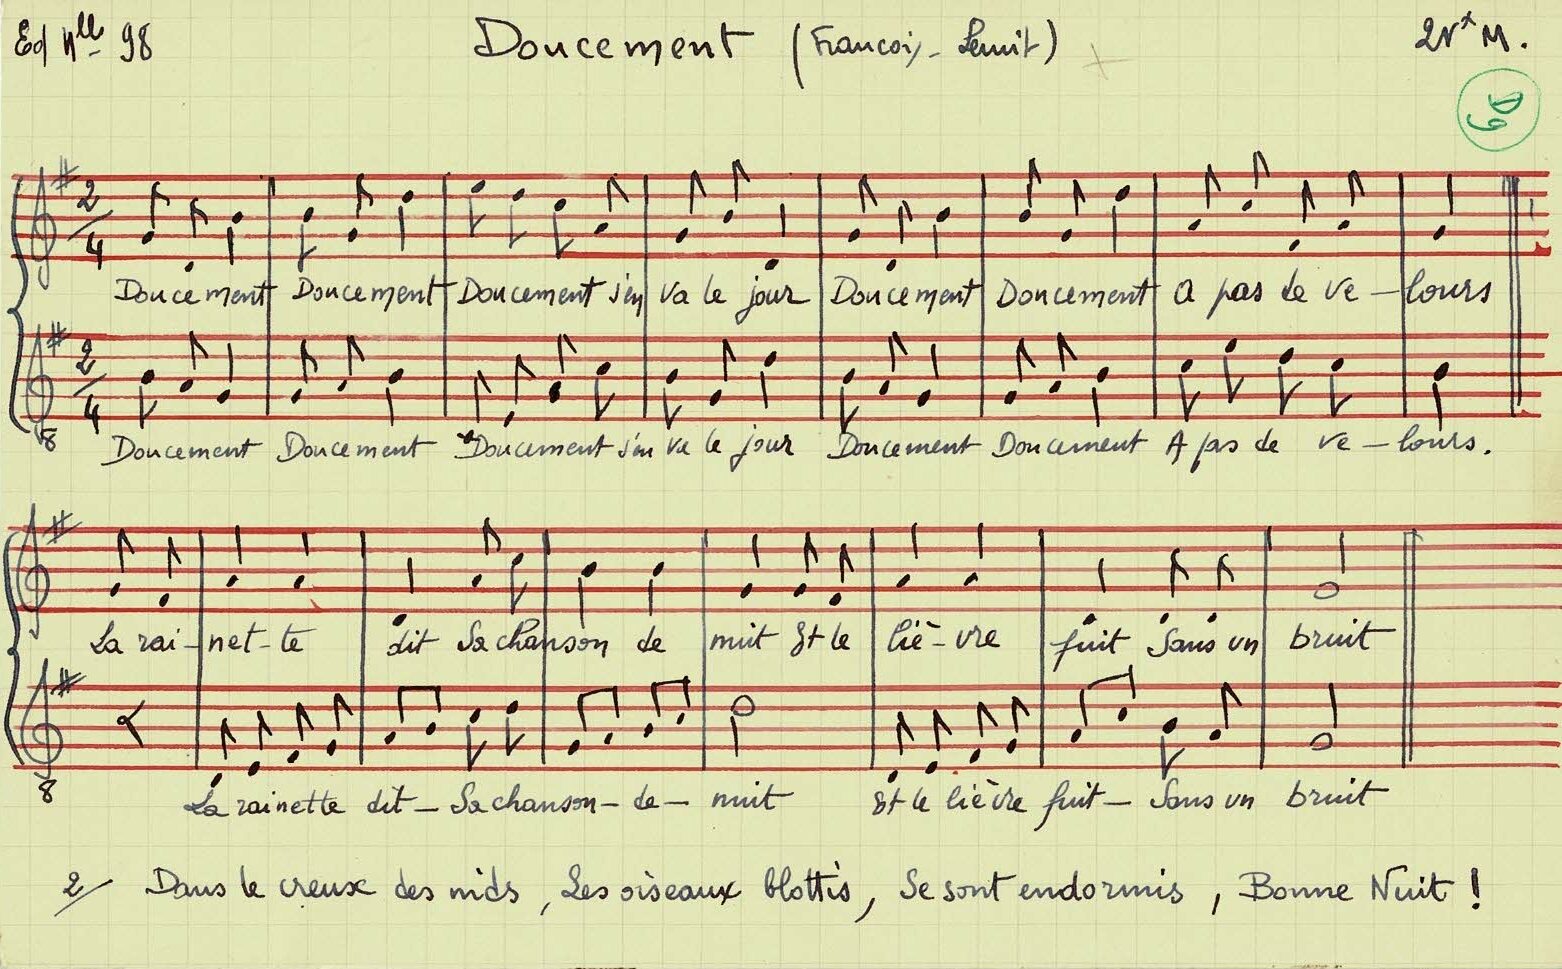 Ed Nlle 98 Doucement (Francois - Lemit) 2Vx M.
2/4
Doucement Doucement Doucement s'en va le jour Doucement Doucement A pas de ve - lours
2/4
8
Doucement Doucement Doucement s'en va le jour Doucement Doucement A pas de ve - lours.
La rai - net - te dit Sa chanson de nuit Et le liè - vre fuit Sans un bruit
8
La rainette dit - Sa chanson - de - nuit Et le lièvre fuit - Sans un bruit
2/ Dans le creux des nids, Les oiseaux blottis, Se sont endormis, Bonne Nuit !